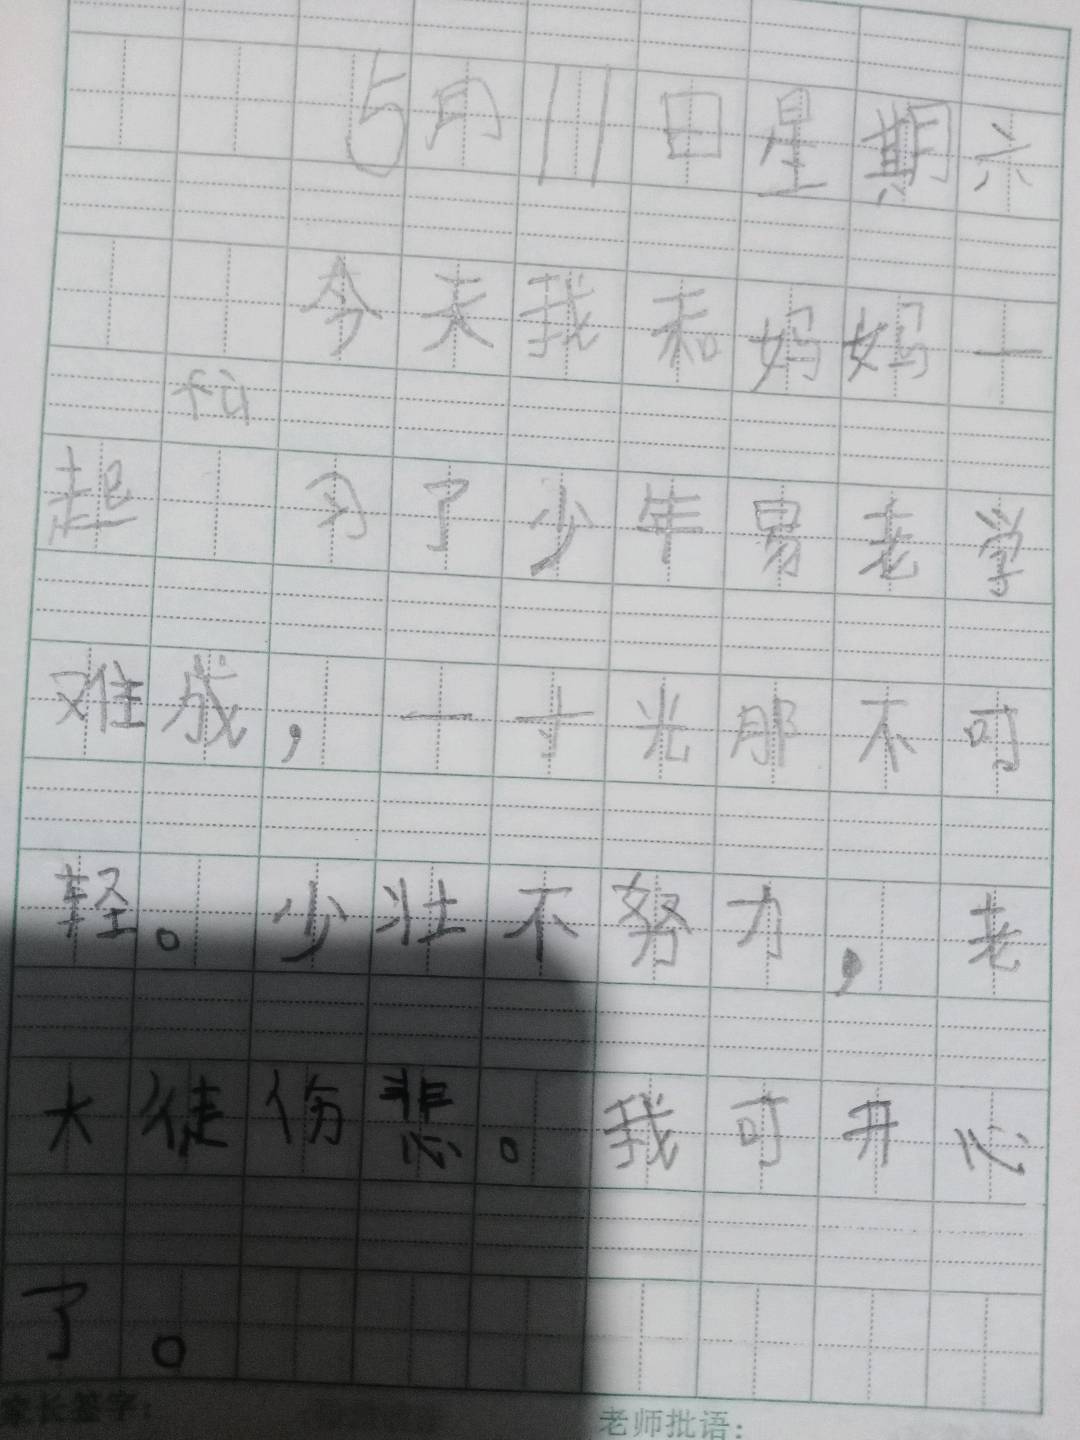 5月11日星期六
今天我和妈妈一
fù
起 习了少年易老学
难成，一寸光那不可
轻。少壮不努力，老
大徒伤悲。我可开心
了。
家长签字：
老师批语：